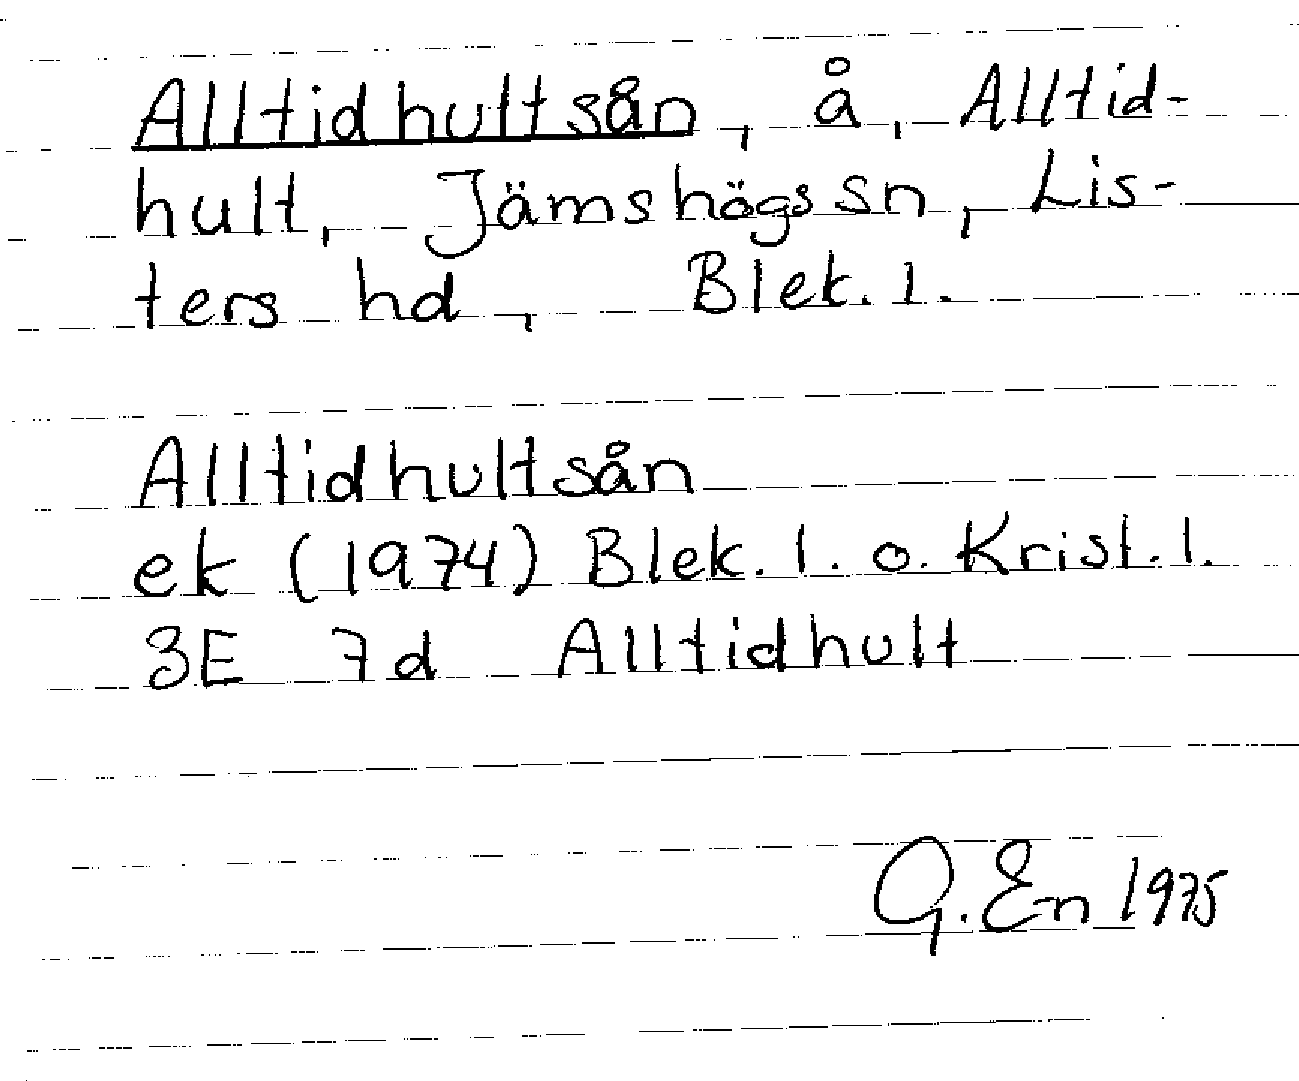 Alltidhultsån, å, Alltid-
hult, Jämshögs sn, Lis-
ters hd, Blek. l.
Alltidhultsån
ek (1974) Blek. l. o. Krist. l.
3E 7d Alltidhult
G. En 1975